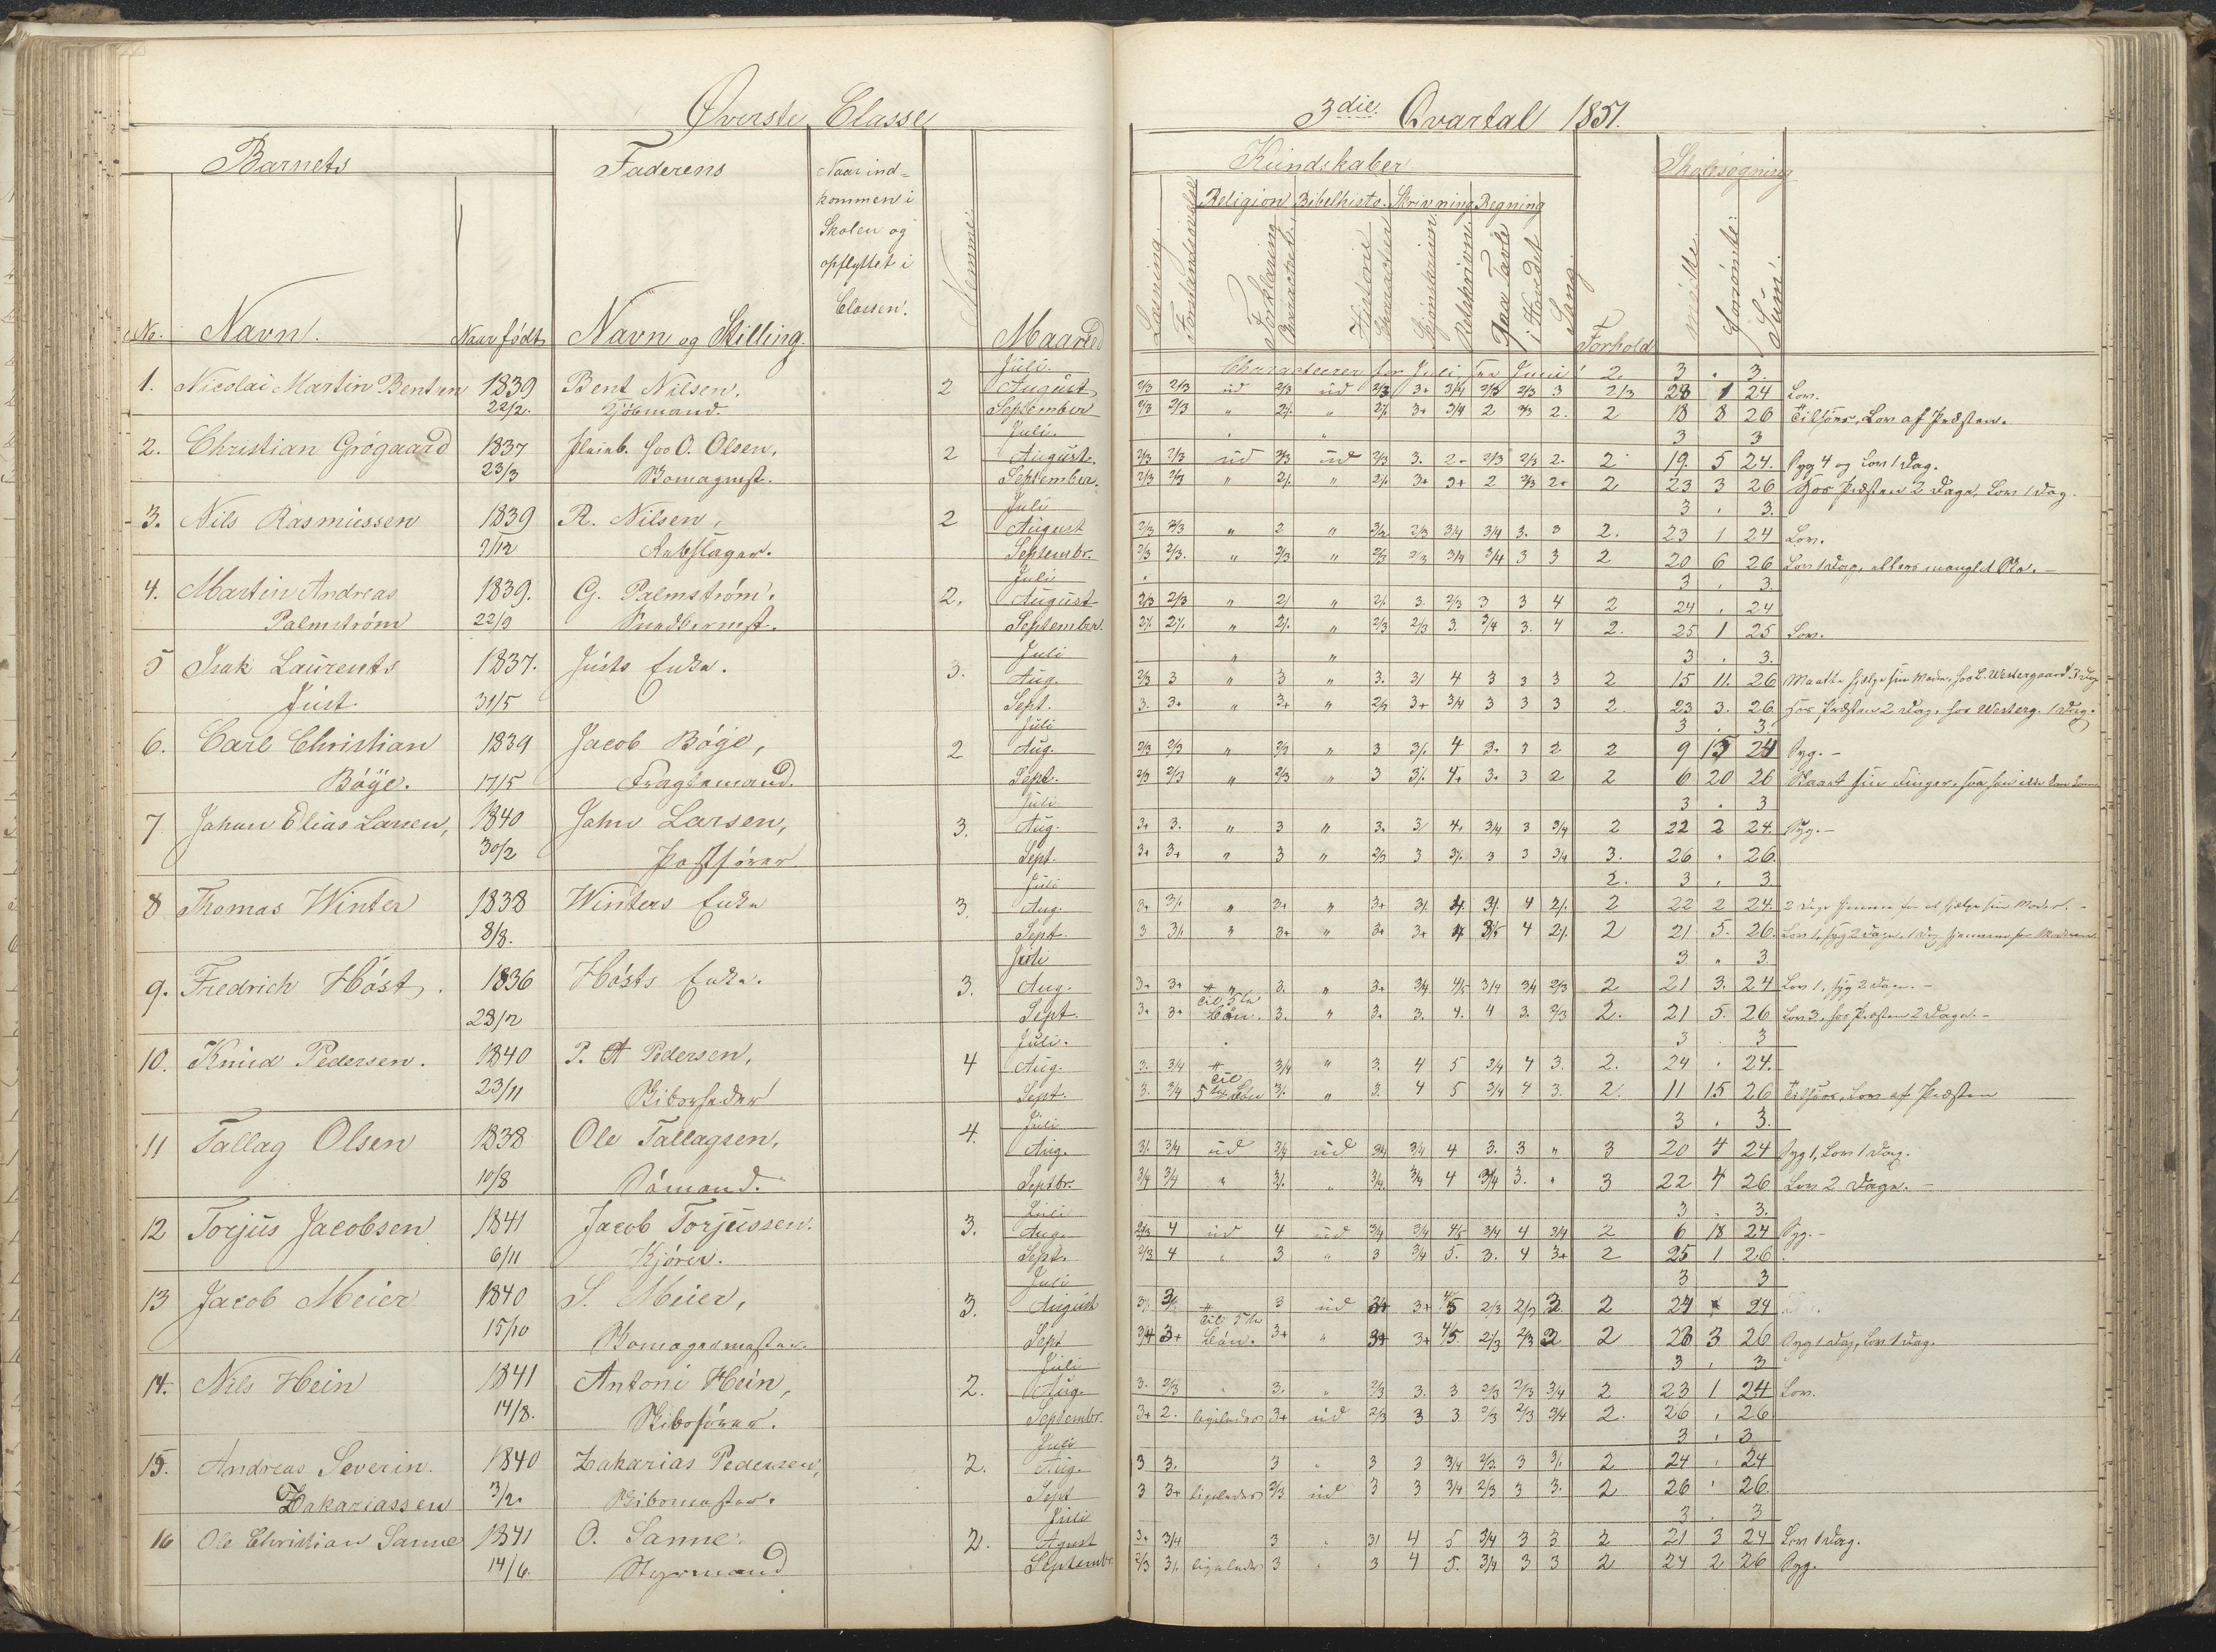 Øverste Classe
Barnets
Faderens
Naar ind-
kommen i
Skolen og
opflyttet i
Classen.
No. Navn. Naar født Navn og Stilling. Nemme Maaned
Juli.
1. Nicolai Martin Bentsen 1839 Bent Nilsen, 2 August
22/2. Kjøbmand. September
Juli.
2. Christian Grøgaard 1837 hos O. Olsen, 2 August.
23/3 September.
Juli
3. Nils Rasmussen 1839 R. Nilsen, 2 August
9/12 Septembr.
Juli
4. Martin Andreas 1839. G. Palmstrøm. 2. August
Palmstrøm 22/9 September.
Juli
5 Isak Laurents 1837. Justs Enke. 3. Aug.
Just. 31/5 Sept.
Juli
6. Carl Christian 1839 Jacob Bøge, 2 Aug.
Bøye. 17/5 Fragtemand. Sept.
Juli
7 Johan Elias Larsen, 1840 John Larsen, 3. Aug.
30/2 Sept.
Juli
8 Thomas Winter 1838 Winters Enke 3. Aug.
8/8. Sept.
Juli
9. Fredrich Høst. 1836 Høsts Enke. 3. Aug.
28/2 Sept.
Juli.
10. Knud Pedersen. 1840 P. A Pedersen, 4 Aug.
23/11 Skibsreder Sept.
Juli
11 Tallag Olsen 1838 Ole Tallagsen, 4. Aug.
10/8 Sømand. Septbr.
Juli
12 Torjus Jacobsen 1841 Jacob Torjussen. 3. Aug.
6/11 Kjører. Sept.
Juli
13 Jacob Meier 1840 S. Meier, 3. August
15/10 Sept
Juli
14. Nils Hein 1841 Antoni Hein, 2. Aug.
14/8. Skibsfører. Septembr.
Juli
15. Andreas Severin 1840 Zakarias Pedersen, 2. Aug.
Zakariassen 3/2. Sept
Juli
16 Ole Christian Sanne 1841 O. Sanne. 2. Agust
14/6. Styrmand Septembr
3die Qvartal 1851.
Kundskaber Skolesøgning
Religion Bibelhisto. Skrivning Regning
Læsning. Forstandsøvelse Forklaring Historie Retskrivni. Paa Tavle i Hovedet Sang. Forhold mødte forsømte Sum.
Characterer for Juli, see Juni 2. 3 . 3.
2/3 2/3 ud 2/3 ud 2/3 3+ 3/4 2/3 2/3 3 2/3 23 1 24 Lov.
2/3 2/3 " " 3+ 3/4 2 2/3 2. 2 18 8 26 Tilsøes, Lov af Præsten.
3 3
2/3 2/3 ud 2/3 ud 2/3 3. 2- 2/3 2/3 2- 2 19. 5 24. Syg 4 og Lov 1 Dag.
2/3 2/3 " " 3+ 3+ 2 2/3 2+ 2 23 3 26 Hos Præsten 2 Dage, Lov 1 Dag.
3 . 3.
2/3 2/3 " 2 " 2/3 3/4 3/4 3. 3 2. 23 1 24 Lov.
2/3 2/3. " 2/3 " 2/3 2/3 3/4 3/4 3 3 2 20 6 26 Lov 1 Dag, ellers manglet Sko.
3 . 3.
2/3 2/3 " " 3. 2/3 3 3 4 2 24 . 24
" " 2/3 2/3 3. 3/4 3. 4 2. 25 1 25 Lov.
" " 3 . 3.
2/3 3 " 3 " 3. 4 3 3 3 2 15 11. 26 Maatte hjelpe sin Moder, hos L. Westergaard 3 Dage
3. 3+ " 2+ " 2/3 3+ 3/4 3 3 3 2. 23 3. 26 hos Præsten 2 Dag, hos Westerg. 1 Dag.
3 . 3.
2/3 2/3 " 2/3 " 3 4 3+ 3 2 2 9 15 24 Syg.
2/3 2/3 " 2/3 " 3 4+ 3+ 3 2 2 6 20 26 Skaaret sin Finger, saa han ikke
3 . 3
3+ 3. " 3 " 3+ 4+ 3/4 3 3/4 2 22 2 24. Syg.
3+ 3+ " 3 " 2/3 3 3 3 3/4 3. 26 . 26.
2. 3 . 3.
" 3+ " 3+ 4 2 22 2 24. 2 Dage hjemme for at hjelpe sin Moder.
3 " 3+ " 3+ 3+ 4 3/5 4 2 21 5. 26.
3 . 3.
3+ 3+ " 3. " 3+ 3/4 4/5 3/4 3/4 2/3 2 21 3. 24 Lov 1, syg 2 Dage.
3+ 3+ Til 5te Bøn. 3. " 3+ 3. 4. 4 3. 2/3 2. 21 5. 26 Lov 3, hos Præsten 2 Dage.
3 . 3
3. 3/4 3/4 " 3. 4 5 3/4 4 3. 2. 24 . 24.
3. 3/4 Til 5te Bøn " 3. 4 5 3/4 4 3. 2. 11 15 26 Tilsøes, Lov af Præsten
3 . 3.
3/4 ud 3/4 ud 3/4 3/4 4 3. 3 " 3 20 4 24 Syg 1, Lov 1 Dag.
3/4 3/4 " " 3/4 3/4 4 3/4 3. " 3 22 4 26 Lov 2 Dage.
3 . 3.
2/3 4 ud 4 ud 3/4 3/4 4/5 3/4 4 3/4 2 6 18 24 Syg.
2/3 4 " 3 " 3 3/4 5. 3. 4 3+ 2 25 1 26.
3 3
3 ud 3+ 4/5 2/3 2/3 2 2 24 24
3/4 3+ Til 5te Bøn. 3+ " 3+ 3+ 4/5. 2/3 2/3 2 2 23 3 26 Syg 1 Dag, Lov 1 Dag.
3 . 3
3. 2/3 3. " 2/3 3. 3 2/3 2/3 3/4 2 23 1 24 Lov.
3+ 2. ligeledes 3+ ud 2/3 3 3 2/3 2/3 3/4 2. 26 . 26
3 . 3
3 3. 3 " 3 3 3/4 2/3. 3 2 24 . 24
3 3+ ligeledes 2/3 ud 3 3 3/4 2/3 3 3. 2 26 . 26.
3 . 3
3+ 3/4 3 " 4 5 3/4 3 3 2 21 3 24 Lov 1 Dag.
2/3 ligeledes 3 " 3 4 5. 3/4 3 3 2 24 2 26 Syg.